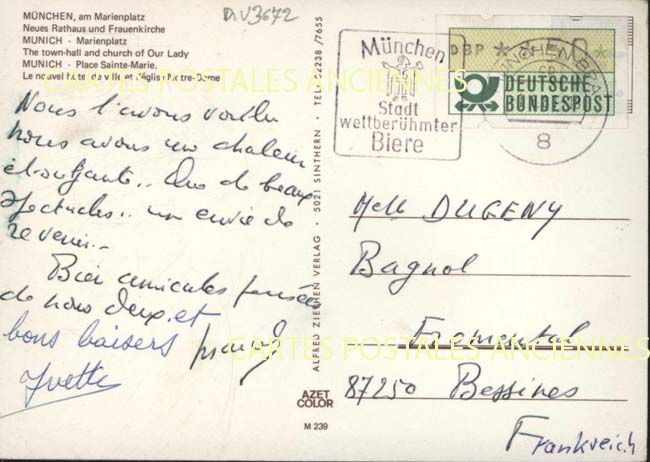 MÜNCHEN, am Marienplatz
Neues Rathaus und Frauenkirche
MUNICH - Marienplatz
The town-hall and church of Our Lady
MUNICH - Place Sainte-Marie,
Le nouvel hôtel de ville et l'église Notre-Dame
DIV3672
CARTES POSTALES ANCIENNES
Nous l'avons voulu
nous avons une chaleur
étouffante.. Que de beaux
spectacles.. une envie de
revenir..
Bien amicales pensées
de nous deux. et
bons baisers
Yvette
ALFRED ZIETHEN VERLAG · 5021 SINTHERN · TEL. 02238/7655
AZET
COLOR
M 239
München
Stadt
weltberühmter
Biere
DBP
DEUTSCHE
BUNDESPOST
MÜNCHEN
8
Melle DUGENY
Bagnol
Fromental
87250 Bessines
Frankreich
CARTES POSTALES ANCIENNES